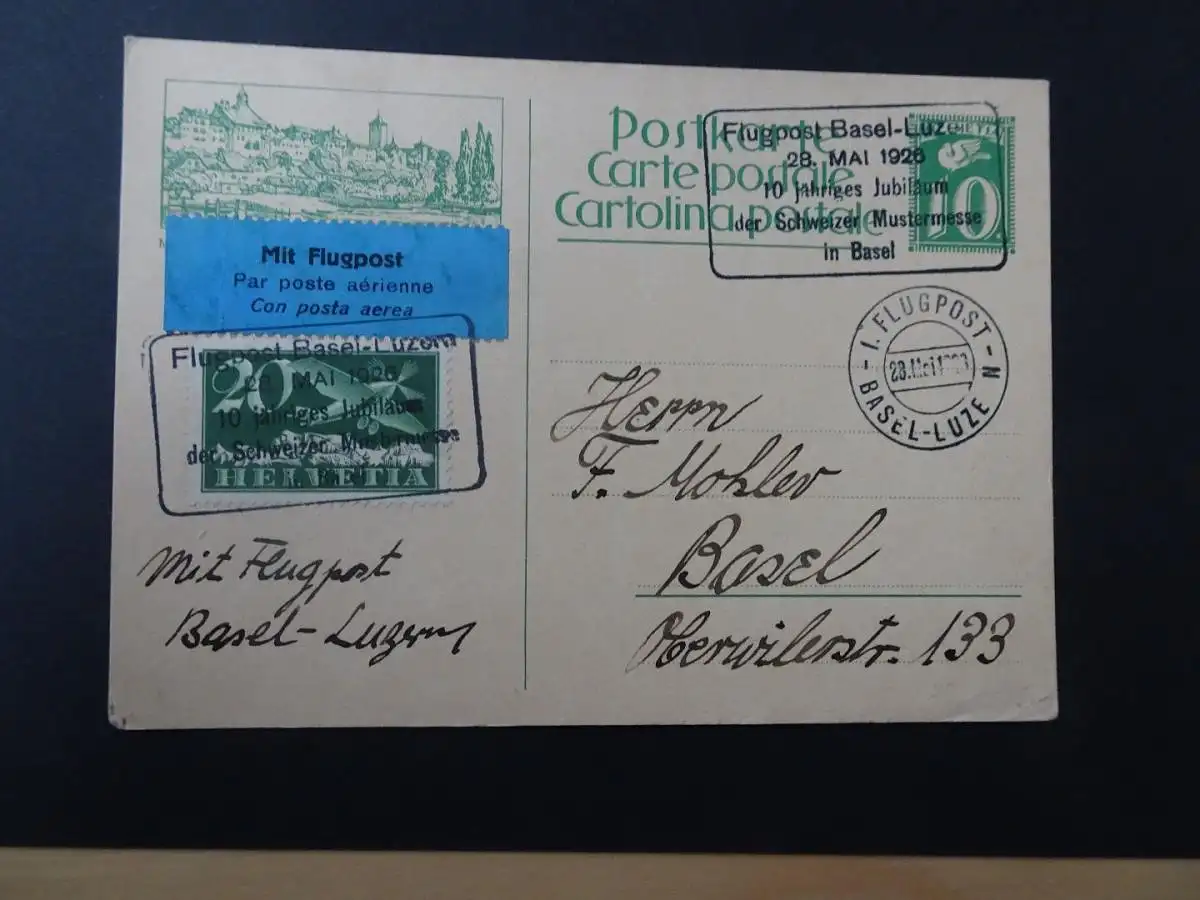 Postkarte
Carte postale
Cartolina postale
HELVETIA
10
Flugpost Basel-Luzern
28. MAI 1926
10 jähriges Jubiläum
der Schweizer Mustermesse
in Basel
Mit Flugpost
Par poste aérienne
Con posta aerea
Flugpost Basel-Luzern
28. MAI 1926
10 jähriges Jubiläum
der Schweizer Mustermesse
in Basel
20
HELVETIA
I. FLUGPOST
28.Mai 1926
BASEL-LUZE N
Herrn
F. Mohler
Basel
Oberwilerstr. 133
Mit Flugpost
Basel-Luzern